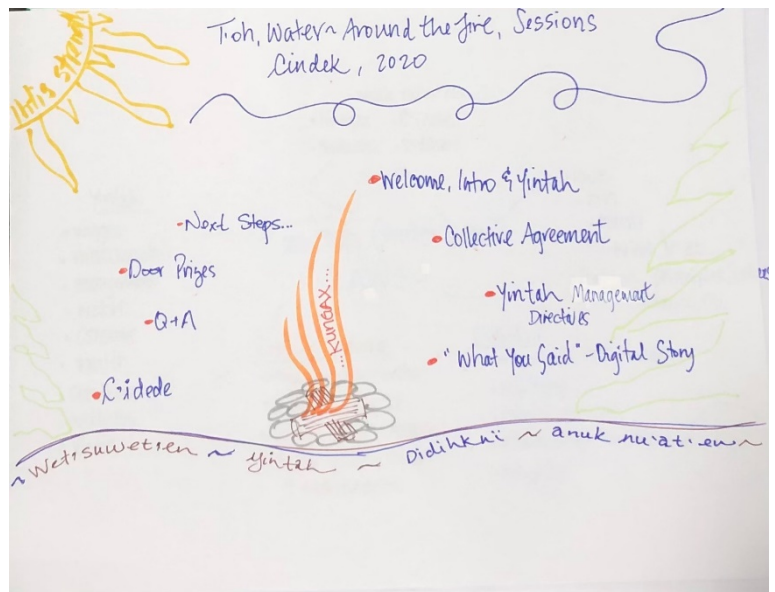 Toh, Water~ Around the fire, Sessions
Cindek, 2020
Welcome, Intro & Yintah
Collective Agreement
Yintah Management
Directives
"What You Said" - Digital Story
C:idede
Q+A
Door Prizes
Next Steps...
...KUNGAX...
~ Wet:suwet:en ~ Yintah ~ Didihknï ~ anuk nu:at:en ~